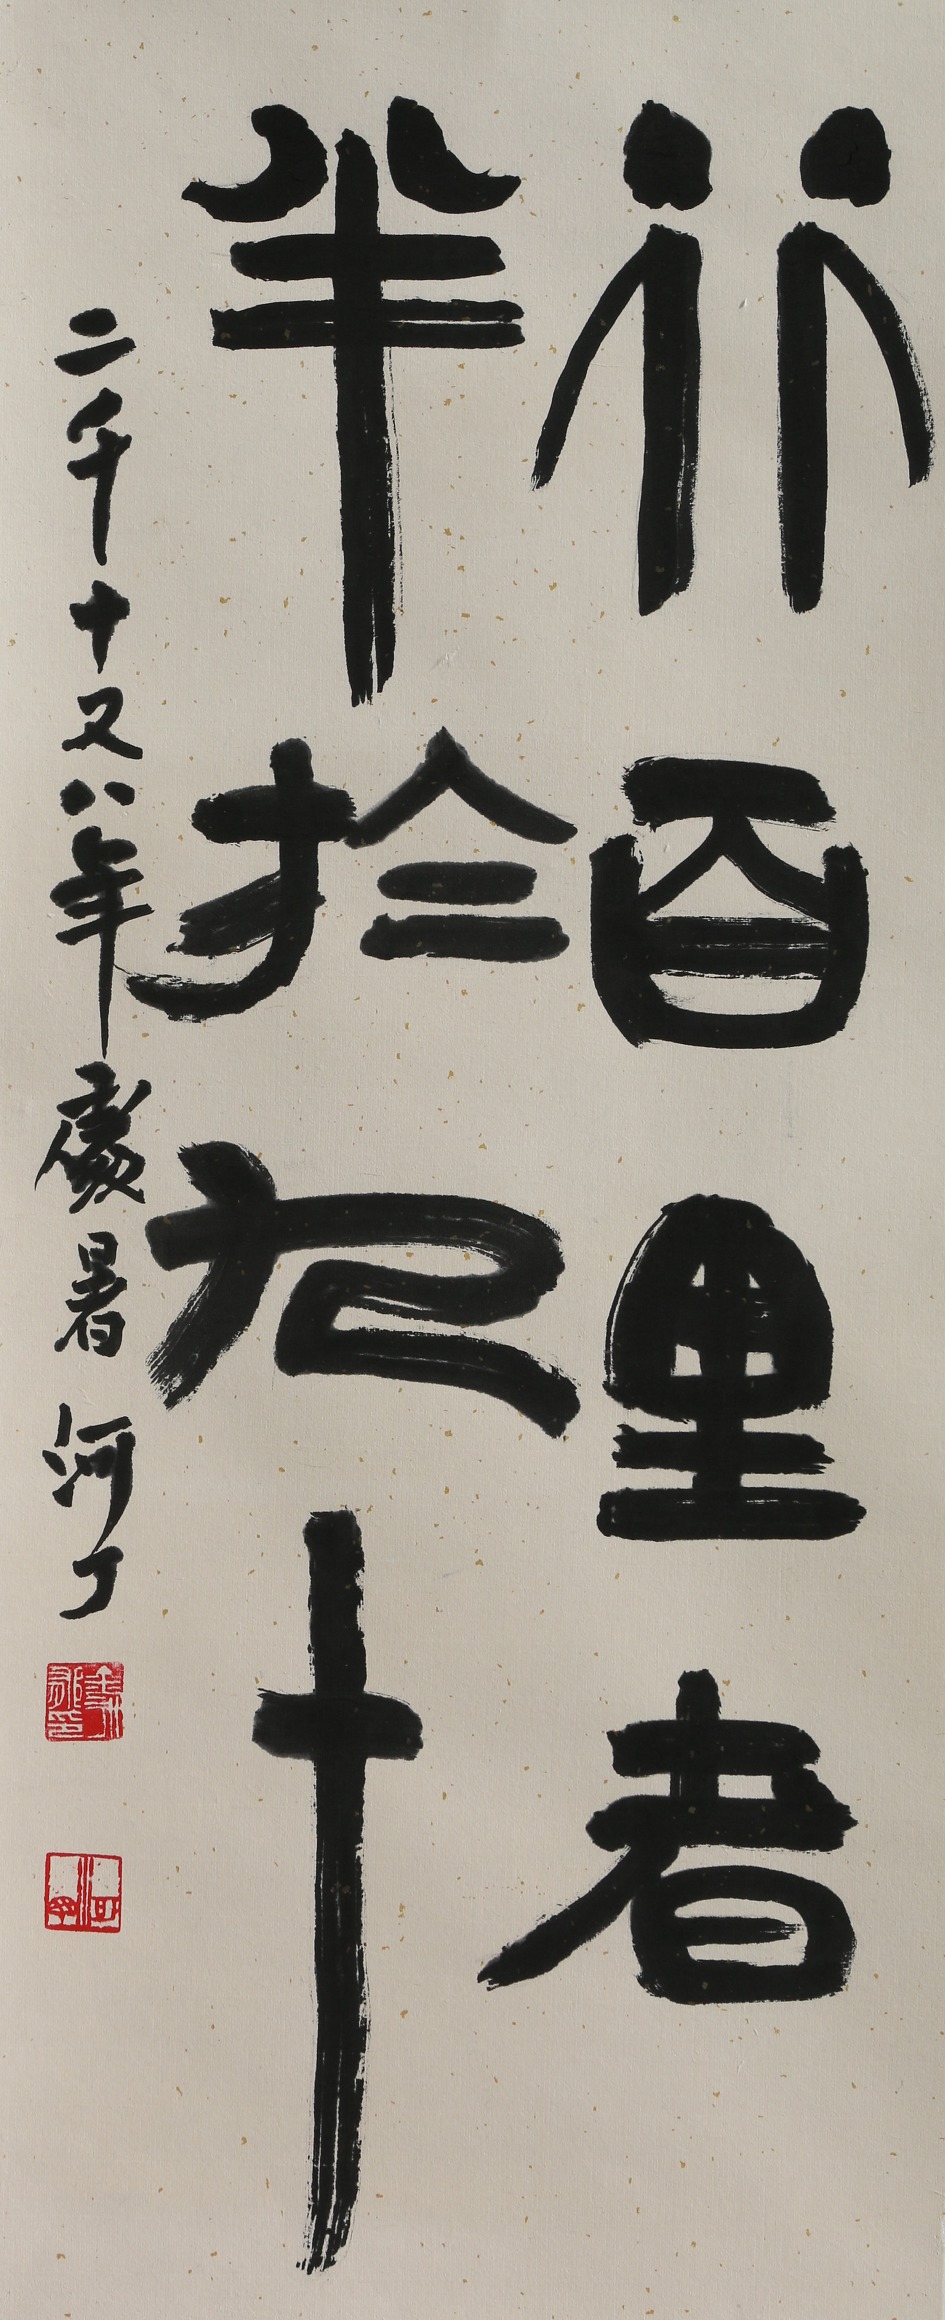 行百里者
半於九十
二千十又八年處暑 河丁